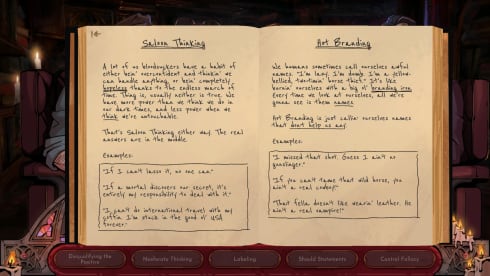 Saloon Thinking
A lot of us bloodsuckers have a habit of
either bein' overconfident and thinkin' we
can handle anything, or bein' completely
hopeless thanks to the endless march of
time. Thing is, usually neither is true. We
have more power than we think we do in
our dark times, and less power when we
think we're untouchable.
That's Saloon Thinking either way. The real
answers are in the middle.
Examples:
"If I can't lasso it, no one can."
"If a mortal discovers our secret, it's
entirely my responsibility to deal with it."
"I can't do international travel with my
coffin. I'm stuck in the good ol' USA
forever."
Art Branding
We humans sometimes call ourselves awful
names. "I'm lazy, I'm dumb, I'm a yellow-
bellied, two-timin' horse thief." It's like
burnin' ourselves with a big ol' branding iron.
Every time we look at ourselves, all we're
gonna see is them names.
Art Branding is just callin' ourselves names
that don't help us any.
Examples:
"I missed that shot. Guess I ain't no
gunslinger."
"If you can't tame that wild horse, you
ain't a real cowboy."
"That fella doesn't like wearin' leather. He
ain't a real vampire!"
Disqualifying the
Positive
Nosferatu Thinking
Labeling
Should Statements
Control Fallacy